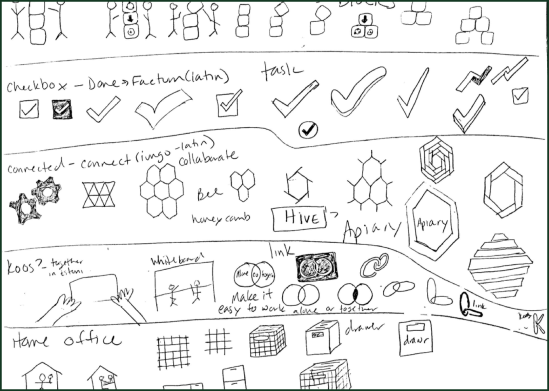 Blocks
checkbox - Done → Factum (latin)
task
connected - connect (iungo - latin)
collaborate
Bee
honeycomb
HIVE →
Apiary
Apiary
Koos? - together
whiteboard
link
Make it
easy to work alone or together
link
koos
K
Home office
drawer
drawr